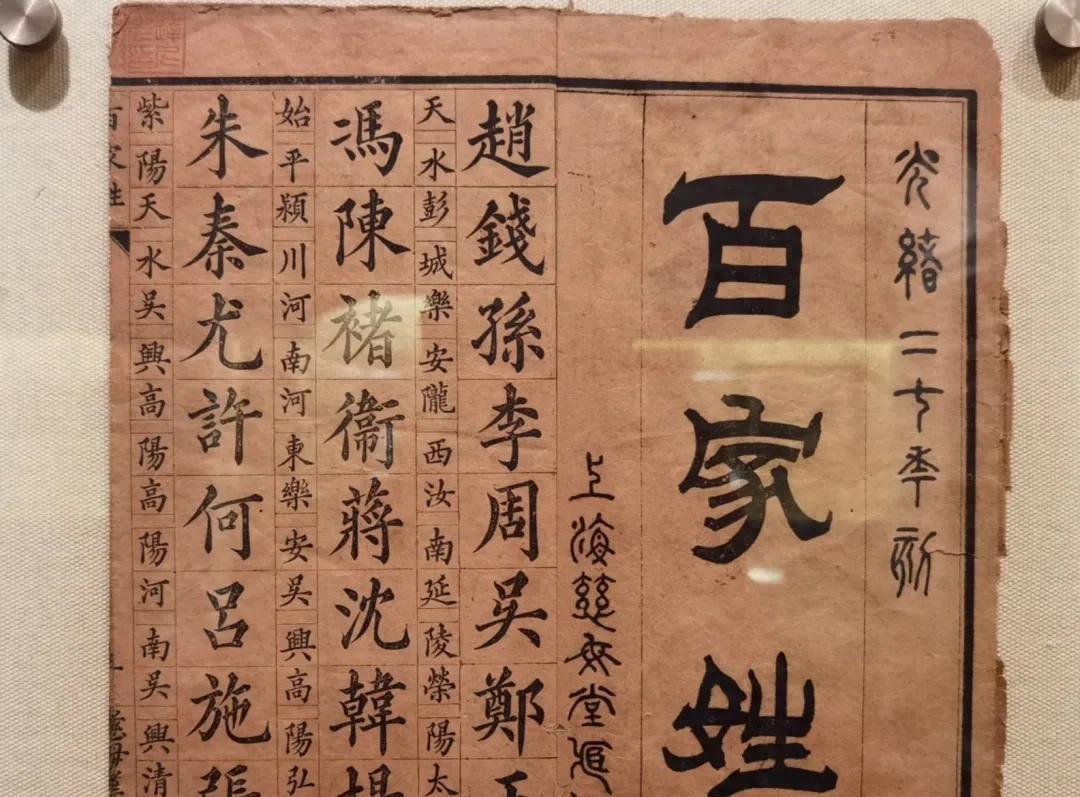 光緒二七年刻
百家姓
上海慈母堂
趙錢孫李周吳鄭王
天水彭城樂安隴西汝南延陵榮陽太
馮陳褚衞蔣沈韓楊
始平潁川河南河東樂安吳興高陽弘
朱秦尤許何呂施張
紫陽天水吳興高陽高陽河南吳興清
百家姓